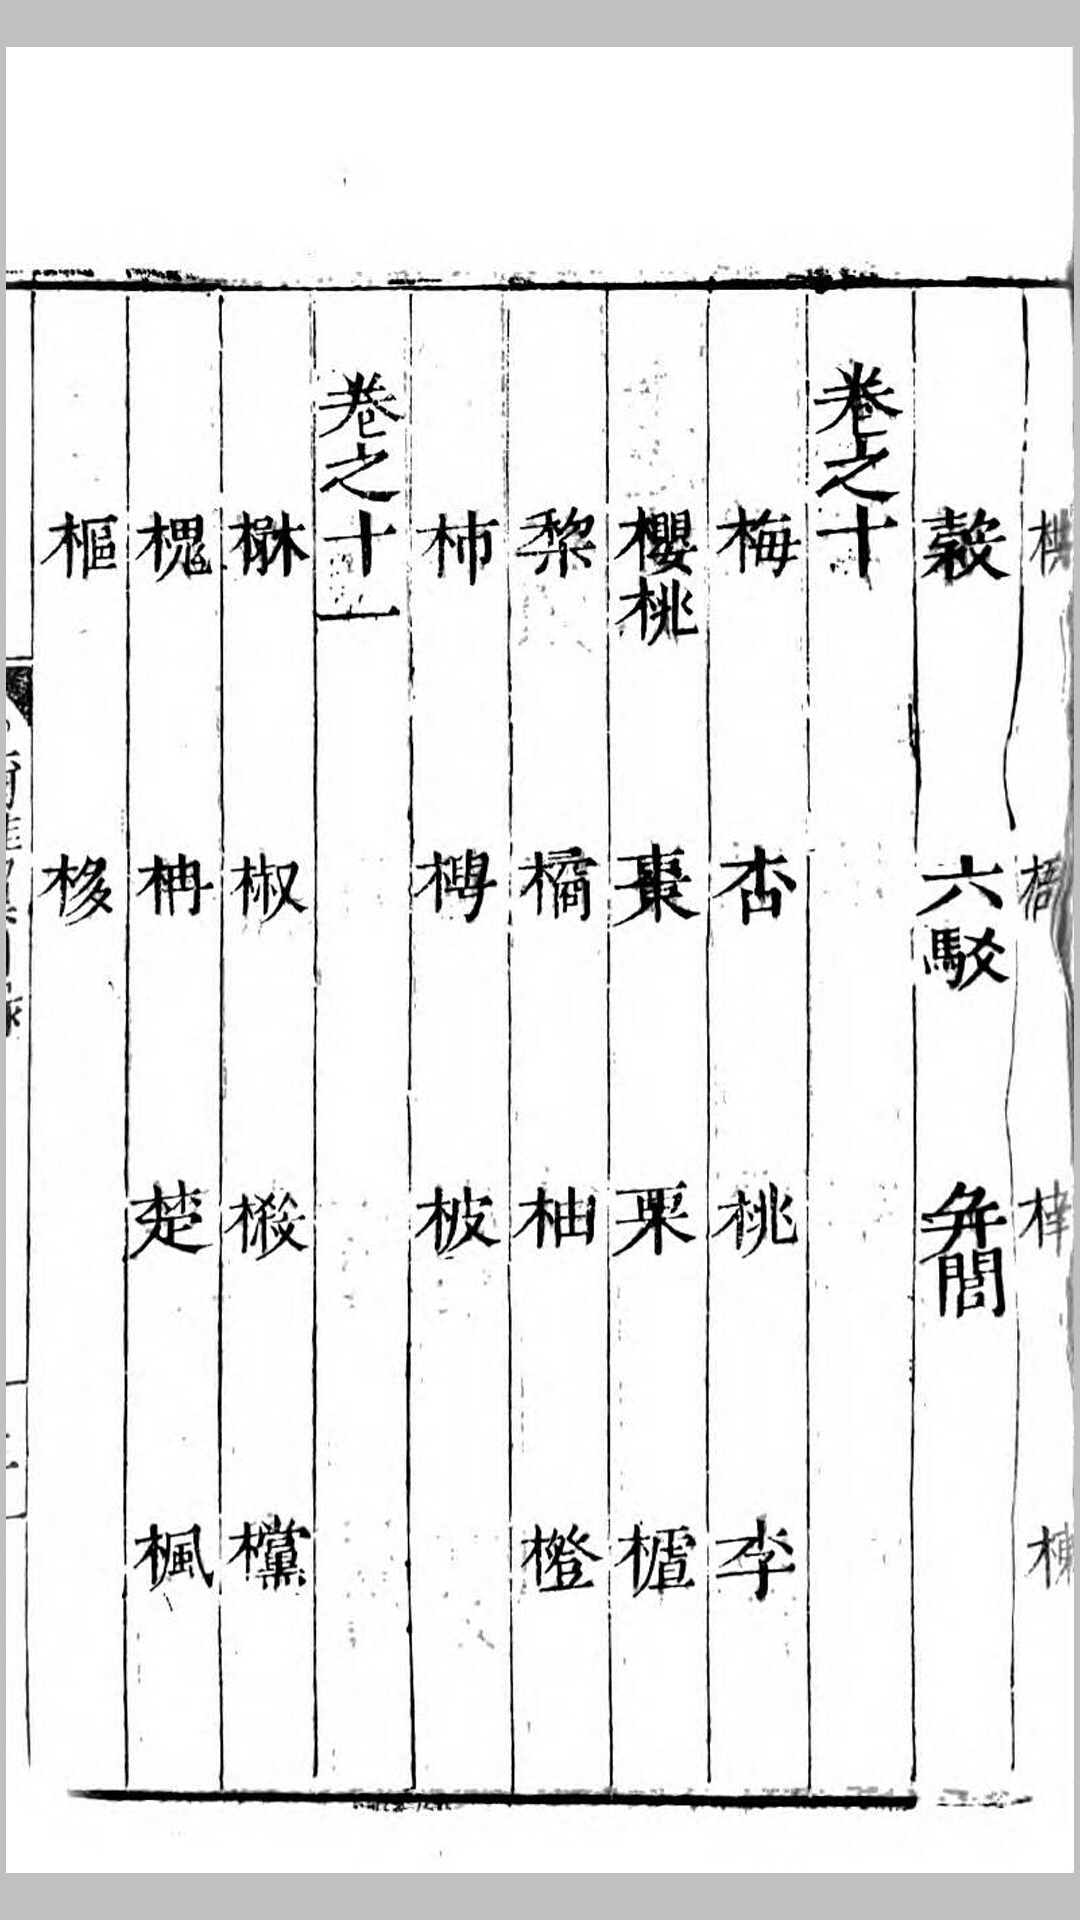 榖 六駁 并閭
卷之十
梅 杏 桃 李
櫻桃 棗 栗 樝
棃 橘 柚 橙
柿 柀
卷之十一
椒 樧 欓
槐 柟 楚 楓
樞 栘